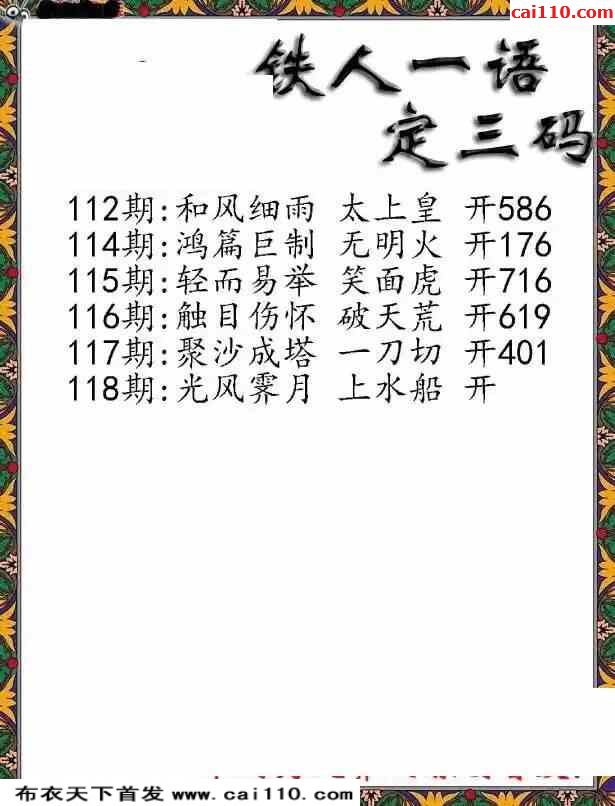 cai110.com
铁人一语
定三码
112期:和风细雨 太上皇 开586
114期:鸿篇巨制 无明火 开176
115期:轻而易举 笑面虎 开716
116期:触目伤怀 破天荒 开619
117期:聚沙成塔 一刀切 开401
118期:光风霁月 上水船 开
布衣天下首发 www.cai110.com